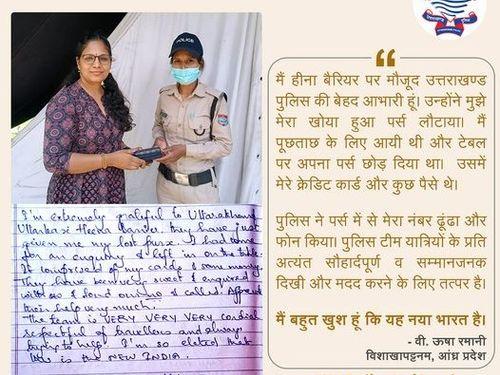 POLICE
मैं हीना बैरियर पर मौजूद उत्तराखण्ड
पुलिस की बेहद आभारी हूं। उन्होंने मुझे
मेरा खोया हुआ पर्स लौटाया। मैं
पूछताछ के लिए आयी थी और टेबल
पर अपना पर्स छोड़ दिया था। उसमें
मेरे क्रेडिट कार्ड और कुछ पैसे थे।
पुलिस ने पर्स में से मेरा नंबर ढूंढा और
फोन किया। पुलिस टीम यात्रियों के प्रति
अत्यंत सौहार्दपूर्ण व सम्मानजनक
दिखी और मदद करने के लिए तत्पर है।
मैं बहुत खुश हूं कि यह नया भारत है।
- वी. ऊषा रमानी
विशाखापट्टनम, आंध्र प्रदेश
I'm extremely grateful to Uttarakhand
Uttarkasi Heena barrier. They have just
given me my lost purse. I had come
for an enquiry & left in on the table.
It comprised of my cards & some money.
They have been very sweet & enquired
with so & found our no & called. Appreciate
their help very much.
The team is VERY VERY VERY cordial
respectful of travellers and always
trying to help. I'm so elated that
this is the NEW INDIA.